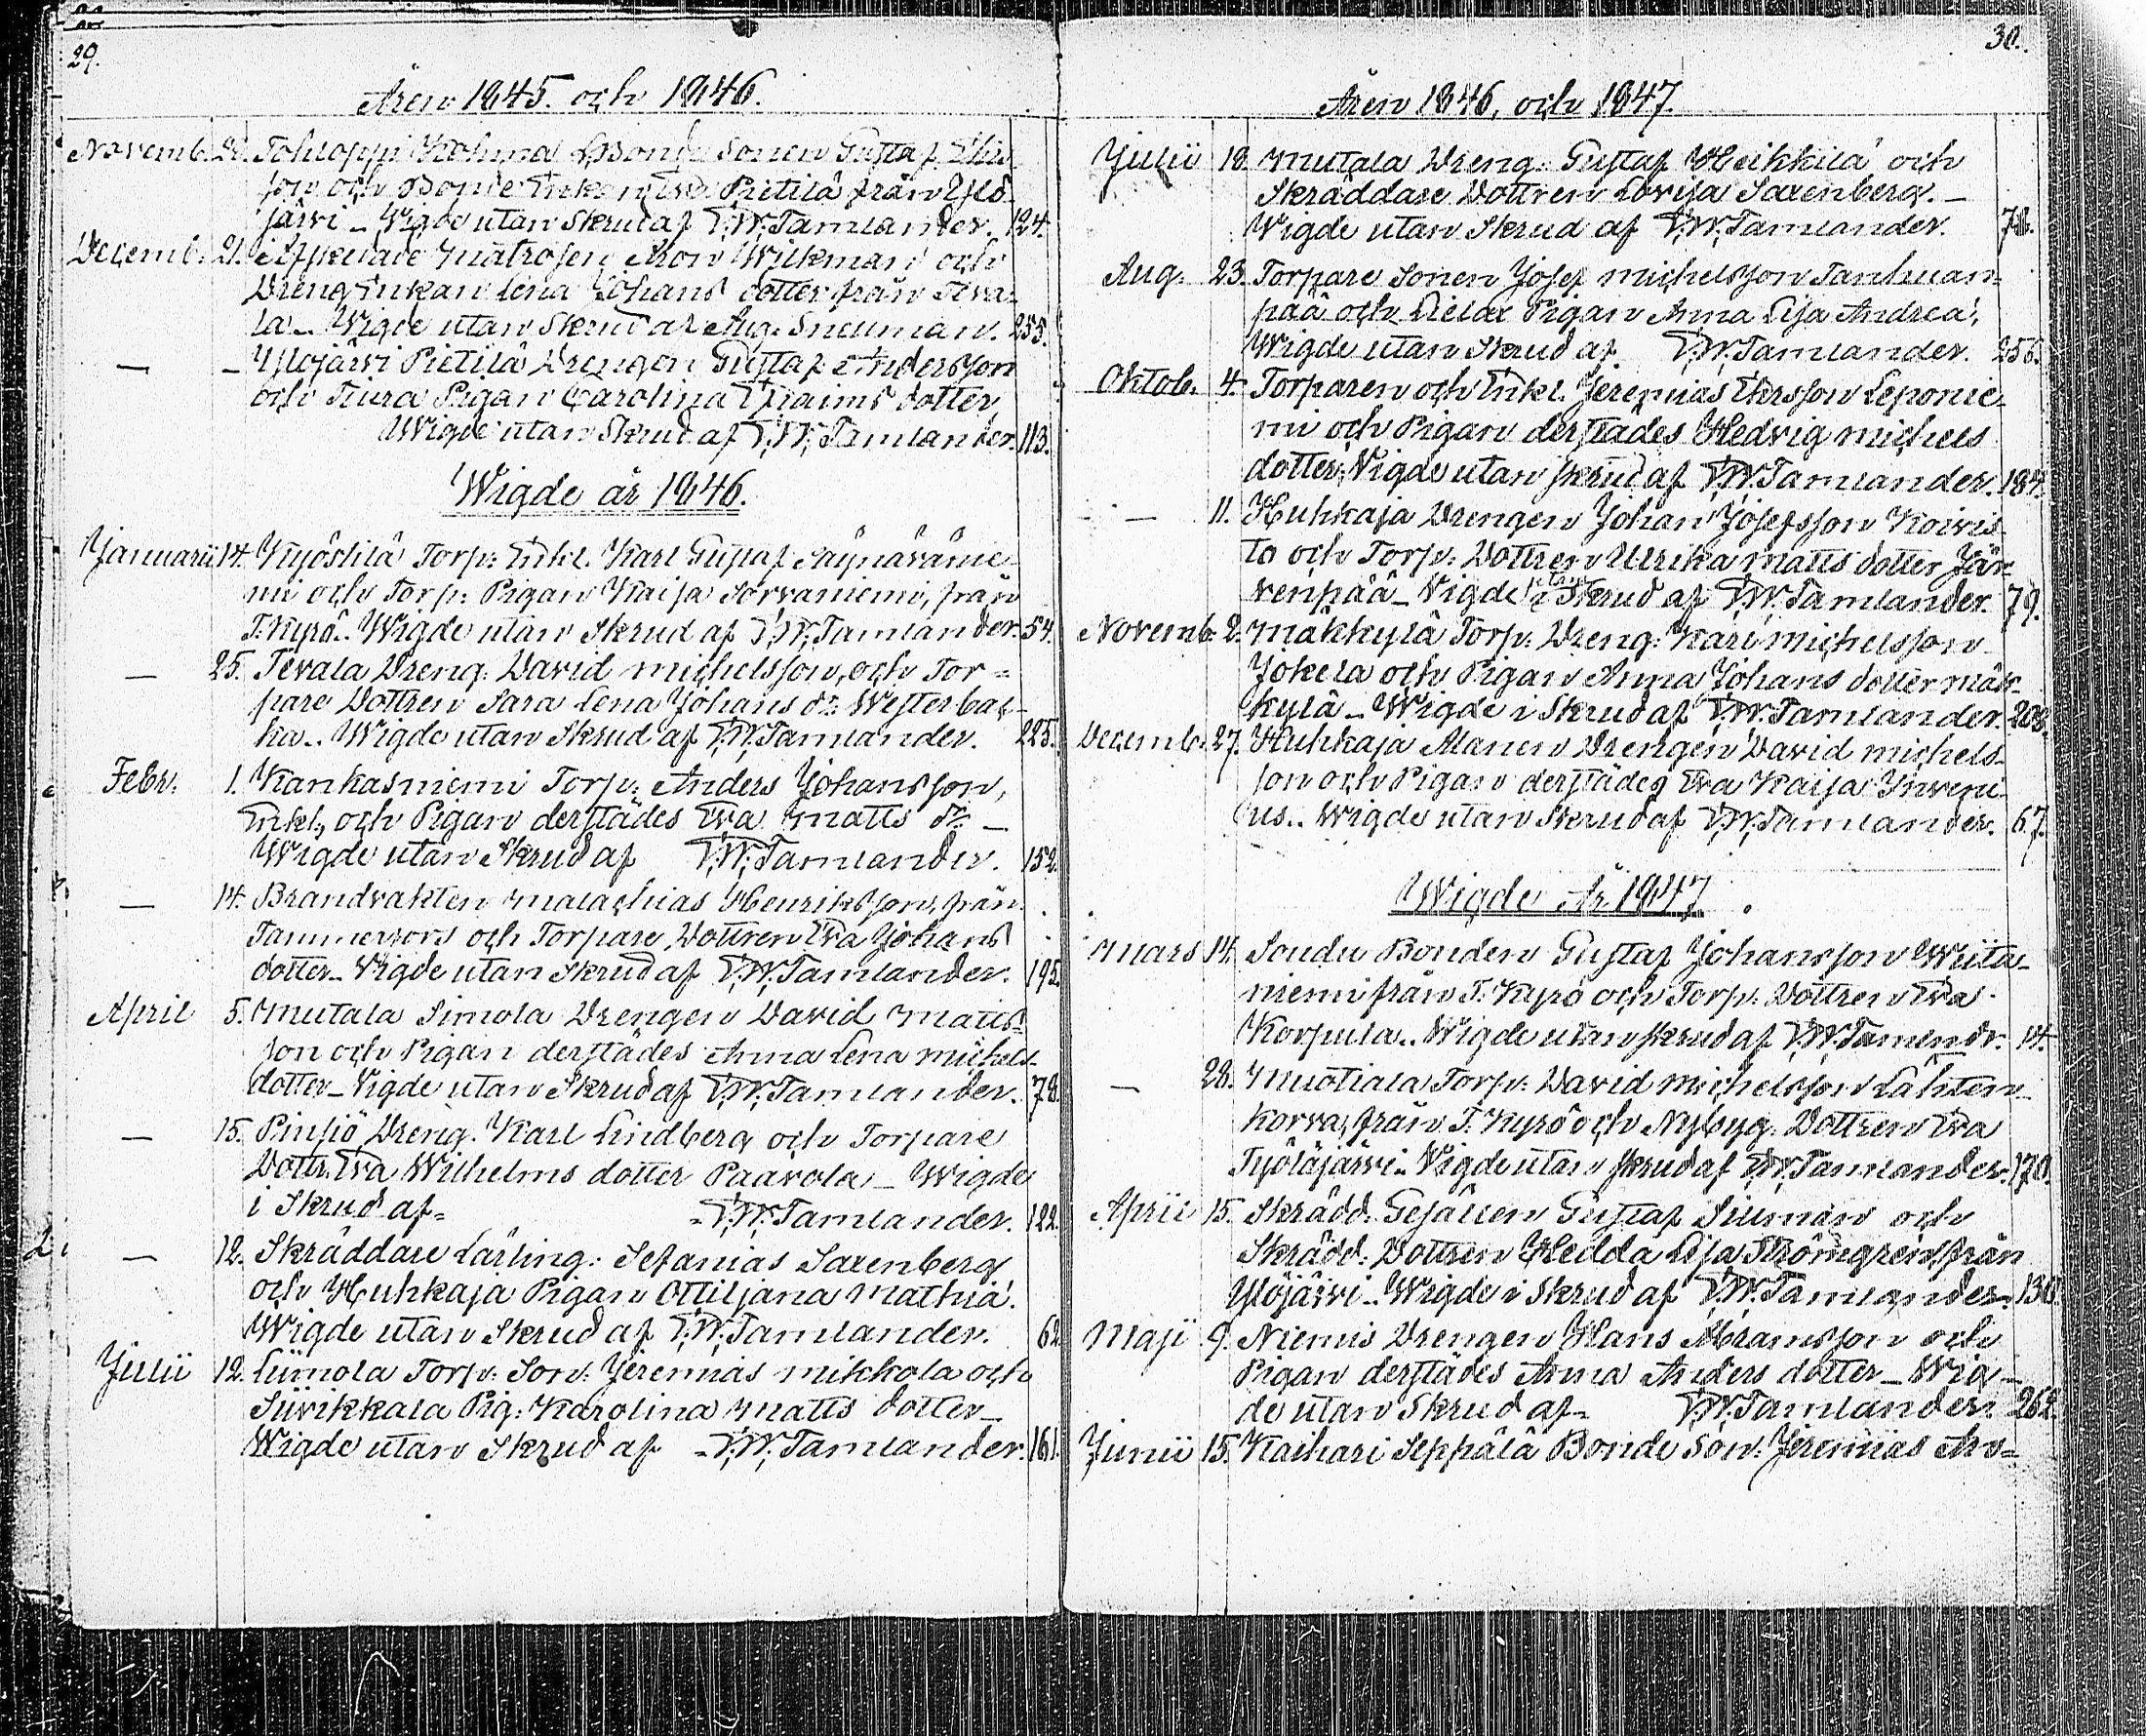 29.
Åren 1845. och 1846.
Novemb. 20. Tohloppi Kohma Bonde Sonen Gustaf Elis
son och Bonde Enkan Eva Pietilä från Ylö
järvi _ Wigde utan Skrud af F.W. Tamlander. 124.
Decemb. 21. Afskedade Matrosen Aron Wilkman och
Dreng Enkan Lena Johans dotter från Teva
la _ Wigde utan Skrud af Aug. Sneuman. 255.
— – Ylöjärvi Pietilä Drengen Gustaf Andersson
och Tiura Pigan Carolina Efraims dotter,
Wigde utan Skrud af F.W. Tamlander. 113.
Wigde år 1846.
Januarii 14. Kyöstilä Torp: Enkl. Karl Gustaf Säynävänie
mi och Torp: Pigan Kaisa Sorvaniemi, från
T. Kyrö.. Wigde utan Skrud af F.W. Tamlander. 54.
— 25. Tevala Dreng. David Michelsson, och Tor=
pare Dottren Sara Lena Johans dr. Westerbac
ka.. Wigde utan Skrud af F.W. Tamlander. 225.
Febr. 1. Kankasniemi Torp: Anders Johansson,
Enkl, och Pigan derstädes Eva Matts dr. _
Wigde utan Skrud af F.W. Tamlander. 152.
— 14. Brandvakten Malachias Henriksson, från
Tammerfors och Torpare Dottren Eva Johans
dotter _ Vigde utan Skrud af F.W. Tamlander. 195.
April 5. Mutala Simola Drengen David Matts
son och Pigan derstädes Anna Lena Michels
dotter _ Vigde utan Skrud af F.W. Tamlander. 78.
— 15. Pinsiö Dreng. Karl Lindberg och Torpare
Dottr. Eva Wilhelms dotter Paavola _ Wigde
i Skrud af= =F.W. Tamlander. 122.
— 12. Skräddare Lärling: Sefanias Saxenberg
och Huhkaja Pigan Ottiljana Mathiä.
Wigde utan Skrud af F.W. Tamlander. 62
Julii 12. Liimola Torp: Son: Jeremias Mikkola och
Siivikkala Pig: Karolina Matts dotter _
Wigde utan Skrud af =F.W. Tamlander. 161.
30.
Åren 1846, och 1847.
Julii 18. Mutala Dreng: Gustaf Heikkilä och
Skräddare Dottren Lovisa Saxenberg. _
Wigde utan Skrud af F.W. Tamlander. 78.
Aug. 23. Torpare Sonen Josef Michelsson Tanhuan=
pää och Lielax Pigan Anna Lisa Andreä,
Wigde utan Skrud af F.W. Tamlander. 256.
Oktob. 4. Torparen och Enkl. Jeremias Ehrsson Leponie
mi och Pigan derstädes Hedvig Michels
dotter, Vigde utan skrud af F.W. Tamlander. 184.
— 11. Huhkaja Drengen Johan Josefsson Koivis
to och Torp: Dottren Ulrika Matts dotter Jär
venpää _ Vigde utan Skrud af F.W. Tamlander. 79.
Novemb. 2. Mäkkylä Torp: Dreng: Karl Michelsson
Jokela och Pigan Anna Johans dotter Mäk
kylä _ Wigde i Skrud af F.W. Tamlander. 208.
Decemb. 27. Huhkaja Alanen Drengen David Michels
son och Pigan derstädes Eva Kaisa Juveni
us.. Wigde utan Skrud af F.W. Tamlander. 67.
Wigde År 1847.
Mars 14. Soudu Bonden Gustaf Johansson Wiita
niemi från T. Kyrö och Torp: Dottren Eva
Korpula.. Wigde utan skrud af F.W. Tamlndr. 14.
— 28. Muotiala Torp: David Michelsson Lähten
korva, från T. Kyrö och Nybyg. Dottren Eva
Työläjärvi _ Vigde utan skrud af F.W. Tamlander. 170.
April 15. Skrädd: Gesällen Gustaf Silman och
Skrädd: Dottren Hedda Lisa Strömgren, från
Ylöjärvi _ Wigde i Skrud af F.W. Tamlander. 130
Maji 9. Niemis Drengen Hans Abramsson och
Pigan derstädes Anna Anders dotter _ Wig _
de utan Skrud af= F.W. Tamlander. 262.
Junii 15. Kaihari Seppälä Bonde Son: Jeremias An=